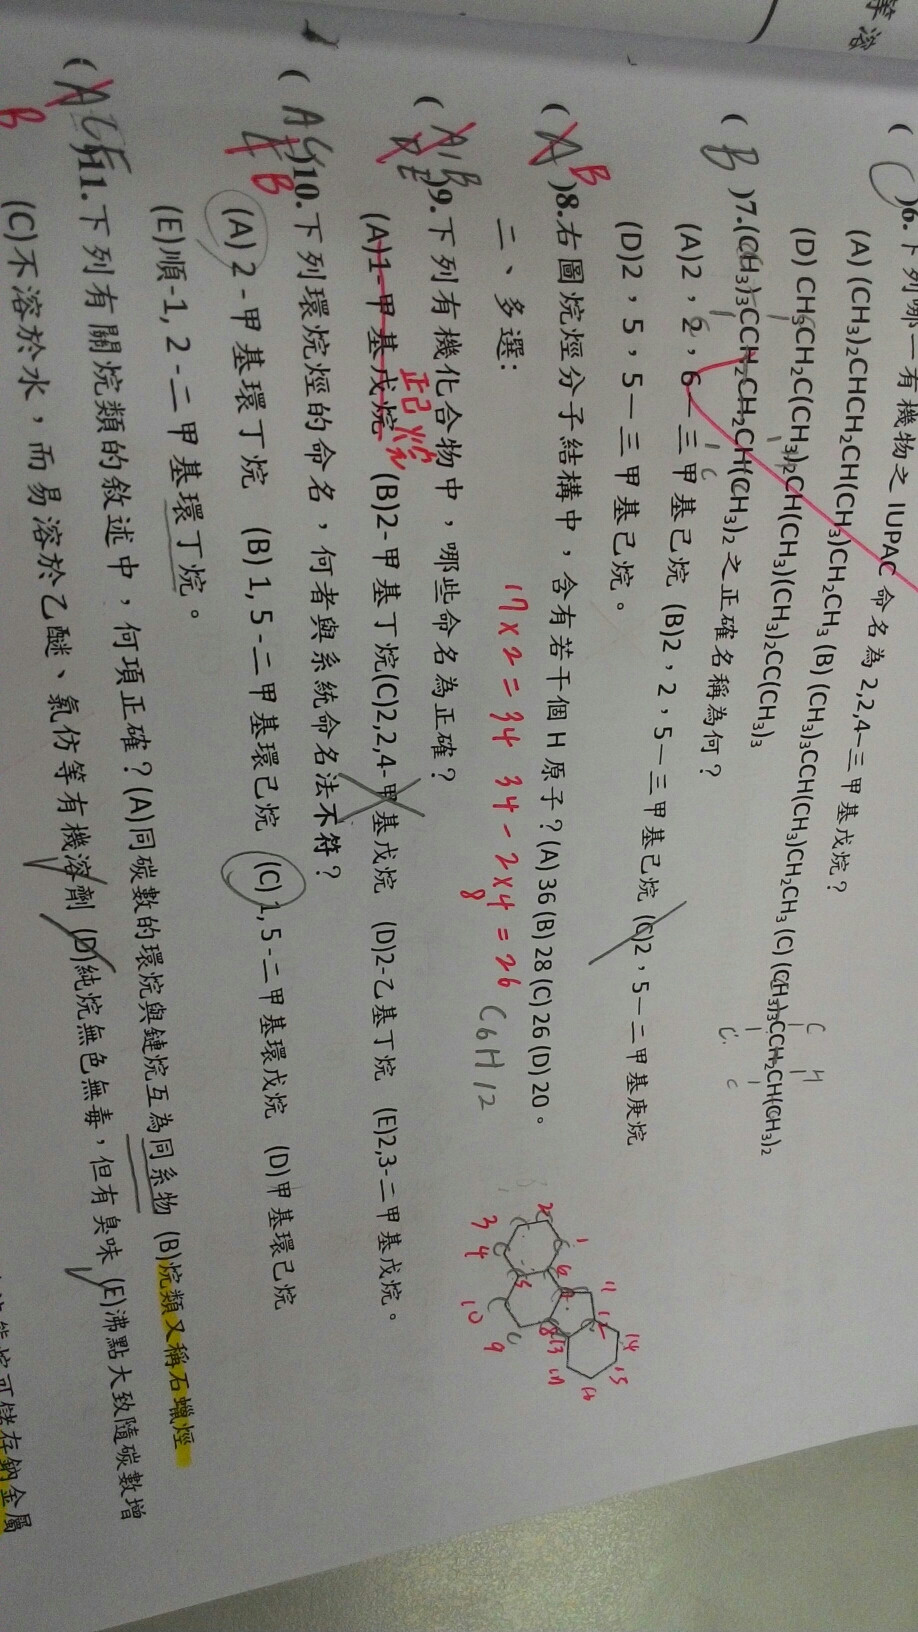 等溶
(C)6.下列哪一有機物之 IUPAC 命名為 2,2,4—三甲基戊烷？
(A) (CH₃)₂CHCH₂CH(CH₃)CH₂CH₃ (B) (CH₃)₃CCH(CH₃)CH₂CH₃ (C) (CH₃)₃CCH₂CH(CH₃)₂
(D) CH₃CH₂C(CH₃)₂CH(CH₃)(CH₃)₂CC(CH₃)₃
(B)7.(CH₃)₃CCH₂CH₂CH(CH₃)₂ 之正確名稱為何？
(A)2，2，6—三甲基己烷 (B)2，2，5—三甲基己烷 (C)2，5—二甲基庚烷
(D)2，5，5—三甲基己烷。
(A B)8.右圖烷烴分子結構中，含有若干個 H 原子？(A) 36 (B) 28 (C) 26 (D) 20。
17×2=34 34-2×4=26 C6H12
8
二、多選：
(A,B DE)9.下列有機化合物中，哪些命名為正確？
(A)1-甲基戊烷 正己烷 (B)2-甲基丁烷(C)2,2,4-甲基戊烷 (D)2-乙基丁烷 (E)2,3-二甲基戊烷。
B
10.下列環烷烴的命名，何者與系統命名法不符？
(A) 2 -甲基環丁烷 (B) 1, 5 -二甲基環己烷 (C) 1, 5 -二甲基環戊烷 (D)甲基環己烷
(E)順-1, 2 -二甲基環丁烷。
11.下列有關烷類的敘述中，何項正確？(A)同碳數的環烷與鏈烷互為同系物 (B)烷類又稱石蠟烴
B
(C)不溶於水，而易溶於乙醚、氯仿等有機溶劑 (D)純烷無色無毒，但有臭味 (E)沸點大致隨碳數增
烷可儲存鈉金屬